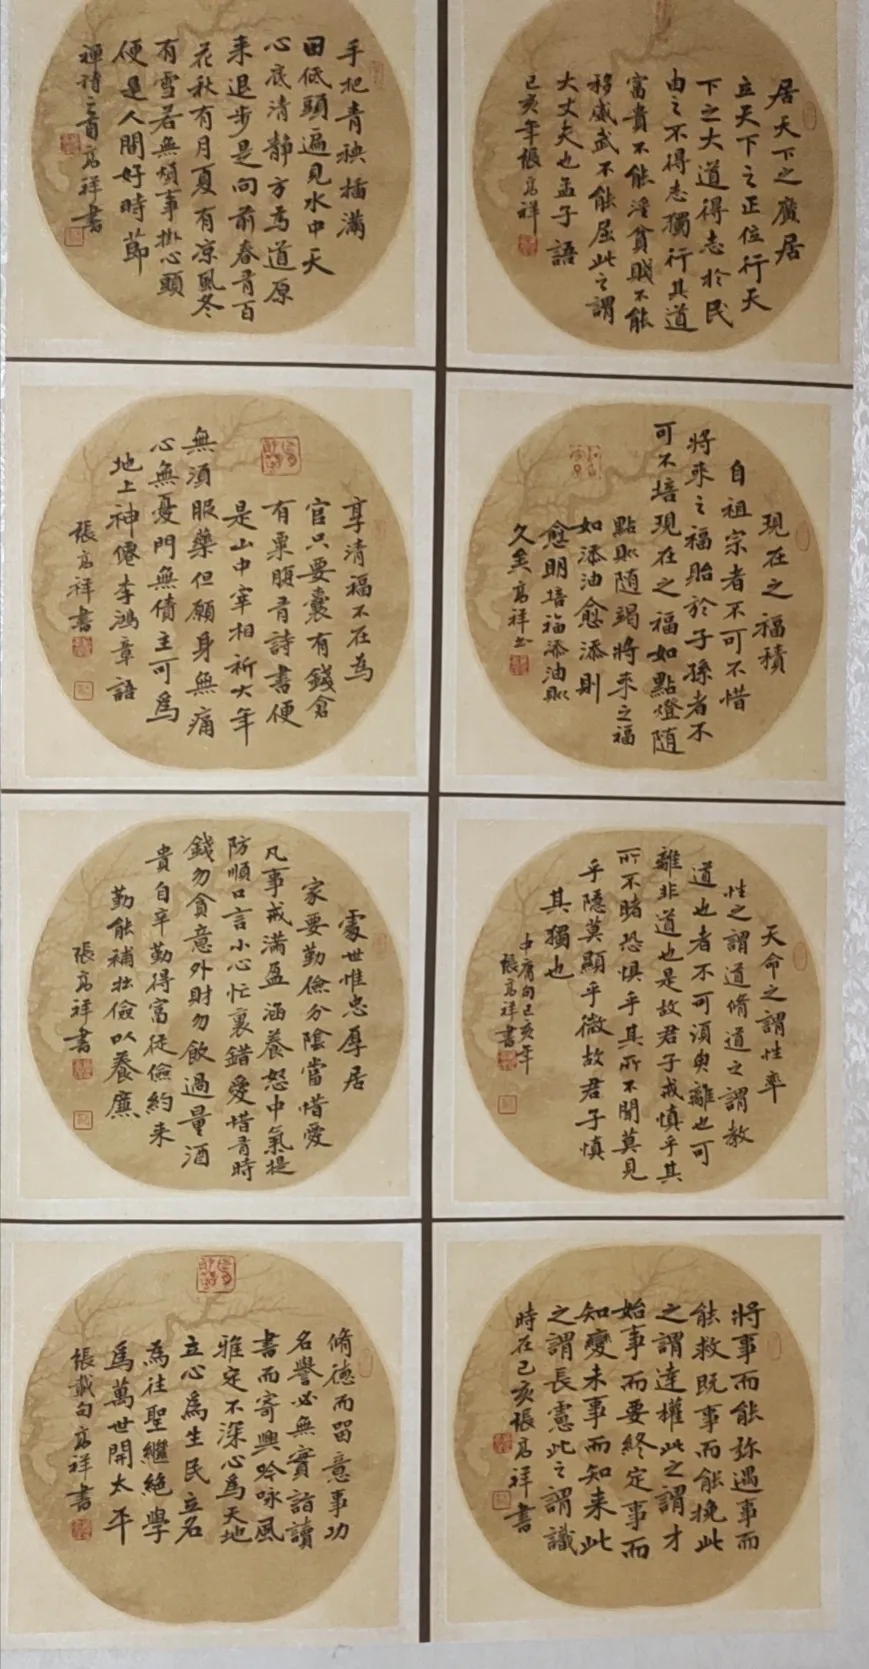 居天下之廣居
立天下之正位行天
下之大道得志於民
由之不得志獨行其道
富貴不能淫貧賤不能
移威武不能屈此之謂
大丈夫也孟子語
己亥年張高祥
手把青秧插滿
田低頭遍見水中天
心底清靜方為道原
來退步是向前春有百
花秋有月夏有涼風冬
有雪若無煩事掛心頭
便是人間好時節
禪詩二首高祥書
現在之福積
自祖宗者不可不惜
將來之福貽於子孫者不
可不培現在之福如點燈隨
點則隨竭將來之福
如添油愈添則
愈明培福添油則
久矣高祥書
享清福不在為
官只要囊有錢倉
有粟腹有詩書便
是山中宰相祈大年
無須服藥但願身無痛
心無憂門無債主可為
地上神僊李鴻章語
張高祥書
天命之謂性率
性之謂道脩道之謂教
道也者不可須臾離也可
離非道也是故君子戒慎乎其
所不睹恐懼乎其所不聞莫見
乎隱莫顯乎微故君子慎
其獨也
中庸句己亥年
張高祥書
處世惟忠厚居
家要勤儉分陰當惜愛
凡事戒滿盈涵養怒中氣提
防順口言小心忙裏錯愛惜有時
錢勿貪意外財勿飲過量酒
貴自辛勤得富從儉約來
勤能補拙儉以養廉
張高祥書
將事而能弥遇事而
能救既事而能挽此
之謂達權此之謂才
始事而要終定事而
知變未事而知来此
之謂長憲此之謂識
時在己亥張高祥書
脩德而留意事功
名譽必無實詣讀
書而寄興吟咏風
雅定不深心為天地
立心為生民立名
為往聖繼絶學
為萬世開太平
張載句高祥書